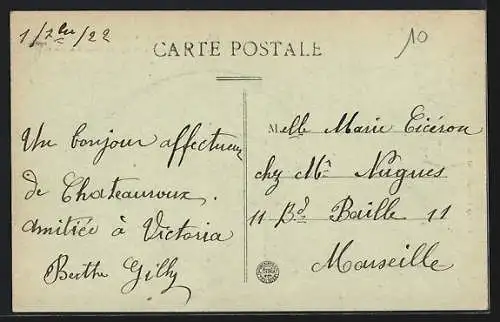 1/7bre/22
CARTE POSTALE
10
Un bonjour affectueux
de Chateauroux.
Amitiée à Victoria
Berthe Gilly
Melle Marie Cicéron
chy Mr Nugues
11 Bd Baille 11
Marseille